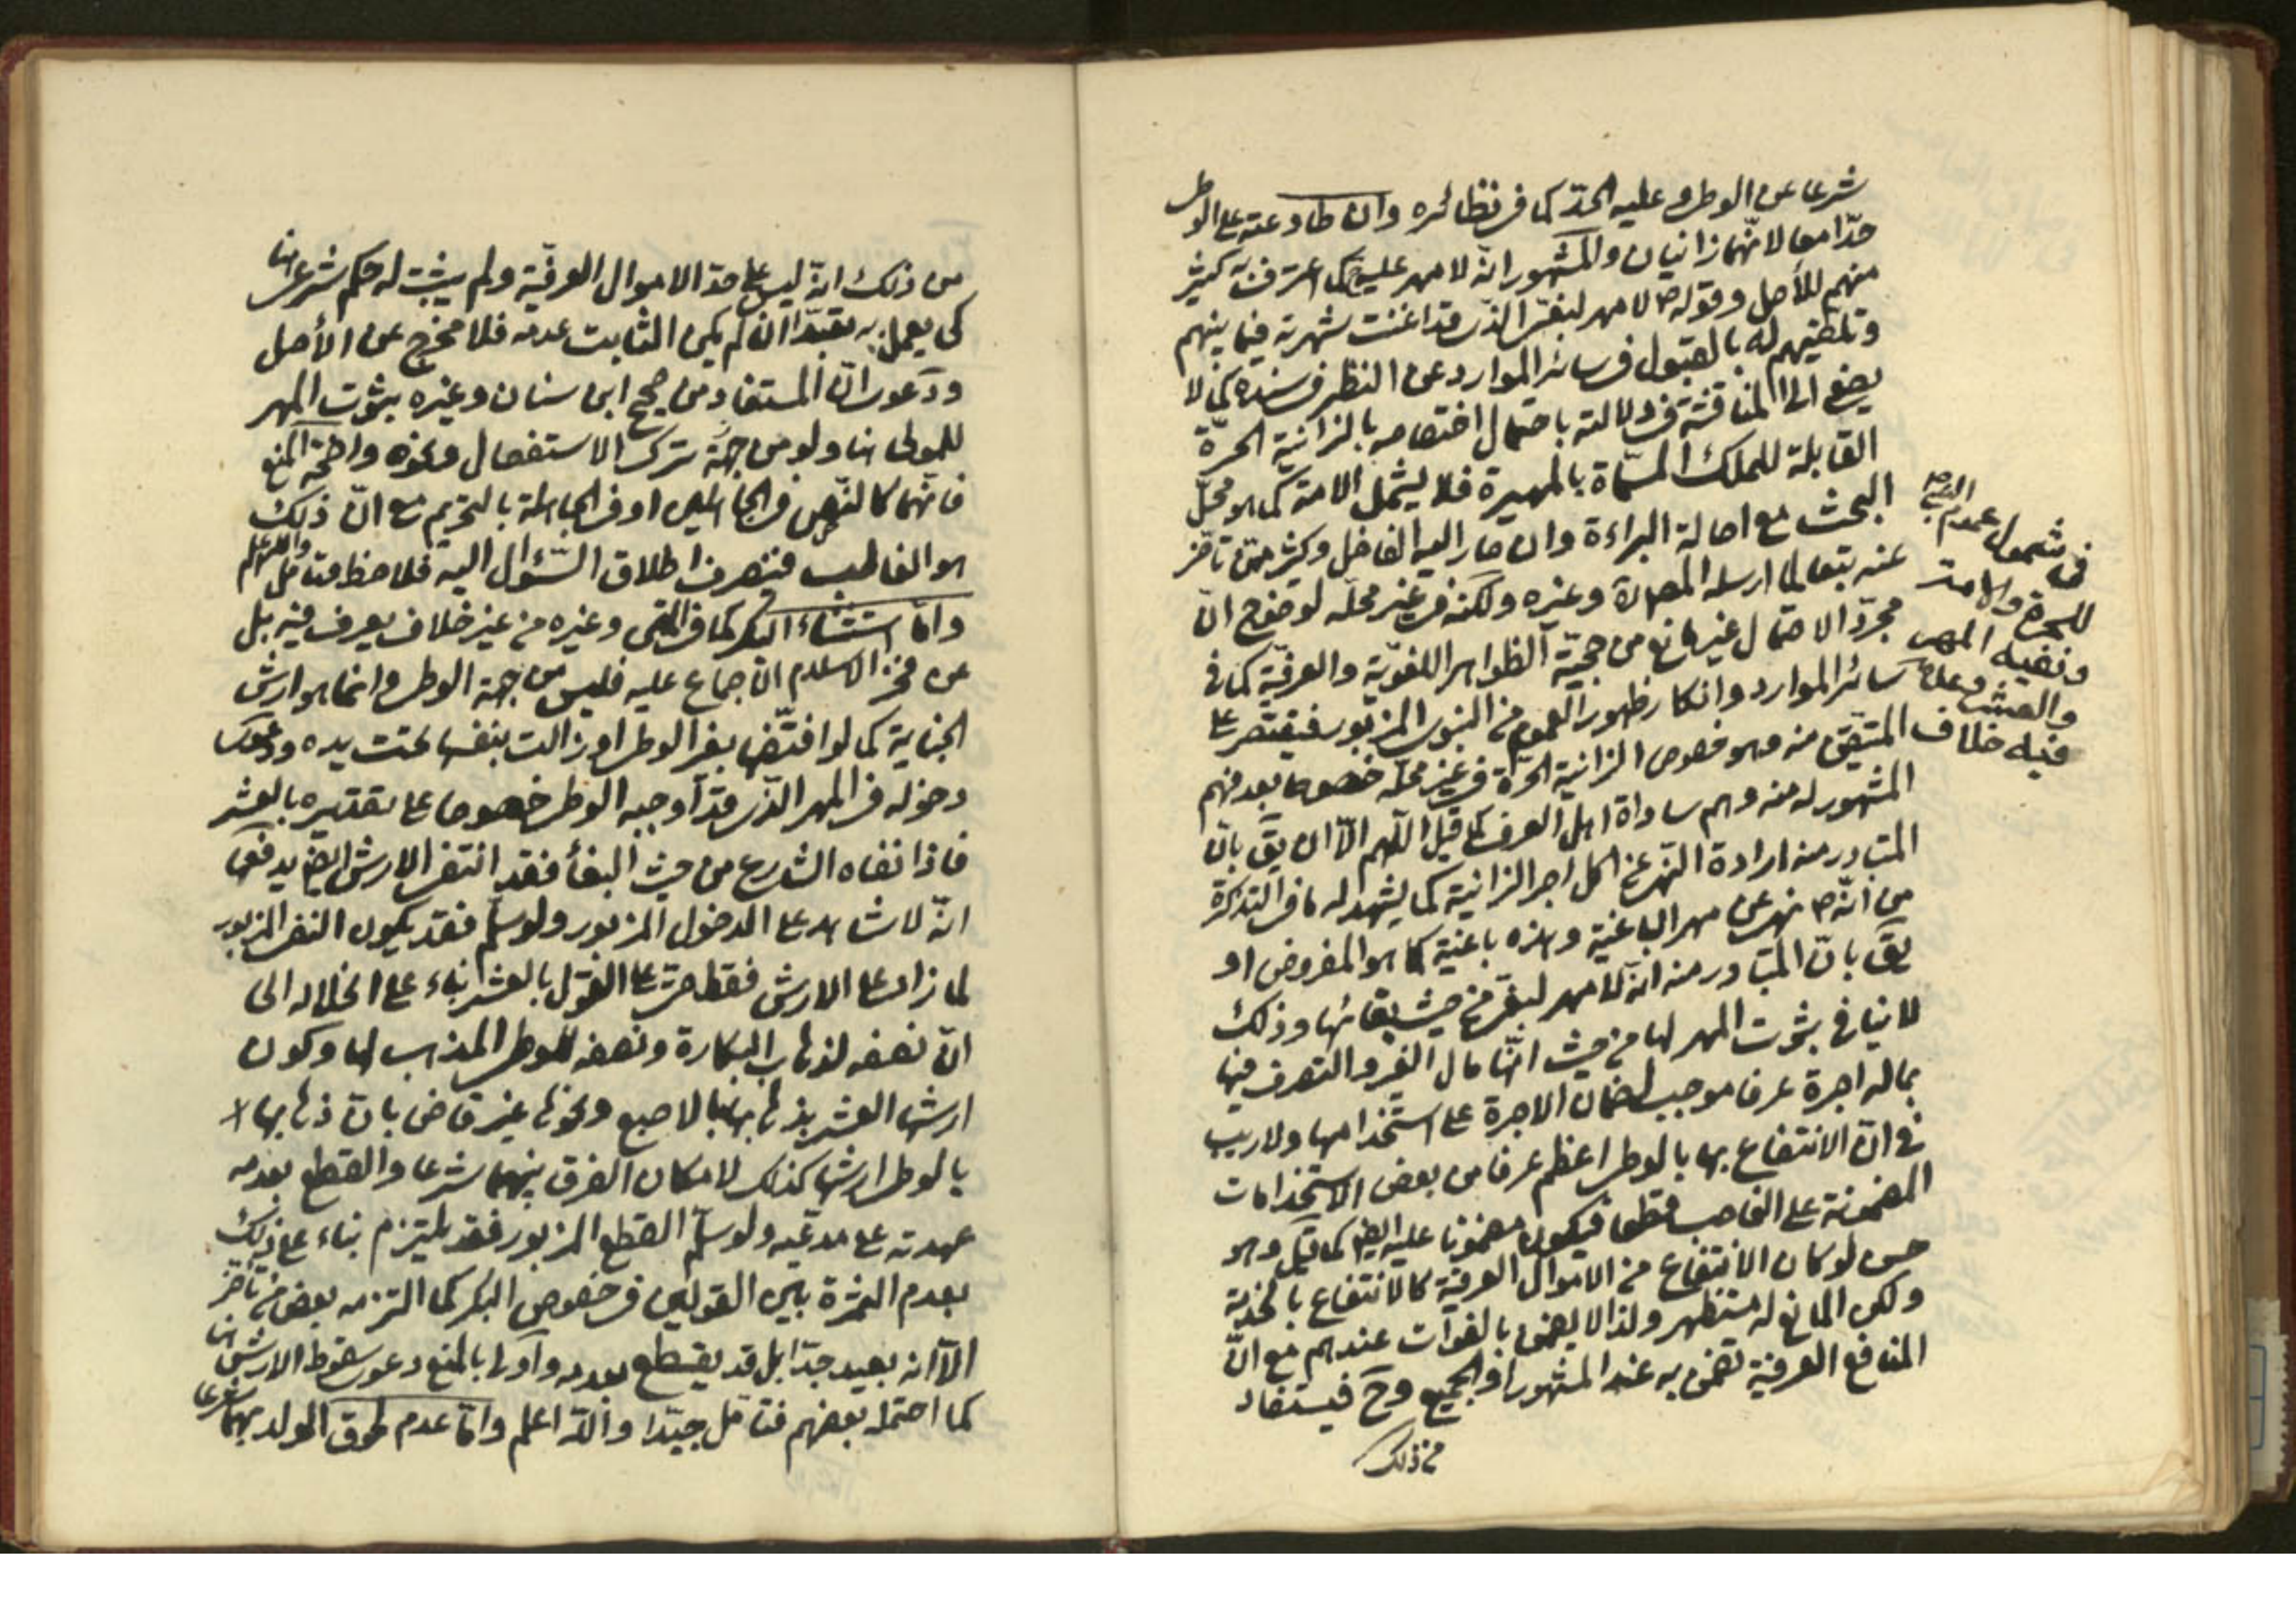 شرعا عن الوطى وعليه الحدّ كما فى نظائره وان طاوعته على الوطى
حدّا معا لانّهما زانيان والمشهور انّه لا مهر عليه كما اعترف به كثير
منهم للأصل وقوله ص لا مهر لبغىّ الذى قد اغنت شهرته فيما بينهم
وتلقيهم له بالقبول فى سائر الموارد عن النظر فى سنده كما لا
يصغى الى المناقشة فى دلالته باحتمال اختصاصه بالزانية الحرّة
القابلة للملك المسمّاة بالمهيرة فلا يشمل الامة كما هو محلّ
البحث مع اصالة البراءة وان صار اليه الفاضل وكثير ممّن تاخّر
عنه تبعا لما ارسله المص وغيره ولكنه فى غير محلّه لوضوح انّ
مجرّد الاحتمال غير مانع من حجيّة الظواهر اللغويّة والعرفيّة كما فى
سائر الموارد وانكار ظهور العموم من النبوى المزبور فيقتصر على
المتيقّن منه وهو خصوص الزانية الحرّة فى غير محلّه خصوصا بعد فهم
المشهور له منه وهم ساداة اهل العرف كما قيل اللّهم الّا ان يقّ بانّ
المتبادر منه ارادة النّهى عن اكل اجر الزانية كما يشهد له ما فى التذكرة
من انّه ص نهى عن مهر الباغية وهذه باغية كما هو المفروض او
يقّ بانّ المتبادر منه انّه لا مهر لبغى من حيث بغائها وذلك
لا ينافى ثبوت المهر لها من حيث انّها مال الغير والتصرف فيها
بماله اجرة عرفا موجب لضمان الاجرة على استخدامها ولا ريب
فى انّ الانتفاع بها بالوطى اعظم عرفا من بعض الاستخدامات
المضمونة على الغاصب قطعا فيكون مضمونا عليه ايضا كما قيل وهو
حسن لو كان الانتفاع من الاموال العرفية كالانتفاع بالخدمة
ولكن المانع له مستظهر ولذا لا يضمن بالفوات عندهم مع انّ
المنافع العرفية تضمن به عند المشهور او الجميع وحّ فيستفاد
من ذلك
فى شمول عموم النص
للحرة والامة
ونفيه المهر
والعشر وعدمه
فيه خلاف
من ذلك انّه ليس على حدّ الاموال العرفيّة ولم يثبت له حكم شرعى هنا
كى يعمل به تعبّدا ان لم يكن الثابت عدمه فلا مخرج عن الأصل
ودعوى انّ المستفاد من صحيح ابن سنان وغيره ثبوت المهر
للمولى هنا ولو من جهة ترك الاستفصال ونحوه واضحة المنع
فانّهما كالنّص فى الجاهلين او فى الجاهلة بالتحريم مع انّ ذلك
هو الغالب فينصرف اطلاق السّؤال اليه فلاحظ وتأمل والله اعلم
وامّا استثناء البكر كما فى المتن وغيره من غير خلاف يعرف فيه بل
عن فخر الاسلام الاجماع عليه فليس من جهة الوطى وانما هو ارش
الجناية كما لو افتضّها بغير الوطى او زالت بنفسها تحت يده ودعوى
دخوله فى المهر الذى قد اوجبه الوطى خصوصا على تقديره بالعشر
فاذا نفاه الشارع من حيث البغاء فقد انتفى الارش ايضا يدفعها
انّه لا شاهد على الدخول المزبور ولو سلّم فقد يكون النفى المزبور
لما زاد على الارش فقط حتى على القول بالعشر بناء على انحلاله الى
انّ نصفه لذهاب البكارة ونصفه للوطى المذهب لها وكون
ارشها العشر بذهابها بالاصبع ونحوها غير قاض بانّ ذهابها
بالوطى ارشها كذلك لامكان الفرق بينهما شرعا والقطع بعدمه
عهدته على مدعّيه ولو سلّم القطع المزبور فقد يلتزم بناء على ذلك
بعدم الثمرة بين القولين فى خصوص البكر كما التزمه بعض من تاخّر
الّا انه بعيد جدّا بل قد يقطع بعدمه واولى بالمنع دعوى سقوط الارش هنا
كما احتمله بعضهم فتامّل جيّدا والله اعلم وامّا عدم لحوق الولد بهما شرعا